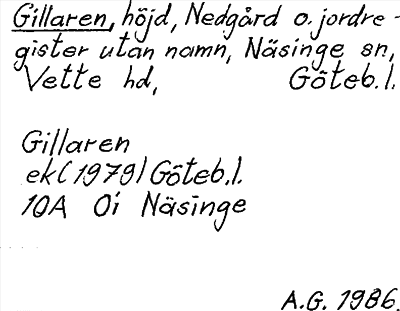 Gillaren, höjd, Nedgård o. jordre-
gister utan namn, Näsinge sn,
Vette hd, Göteb.l.
Gillaren
ek (1979) Göteb.l.
10A 0i Näsinge
A.G. 1986.